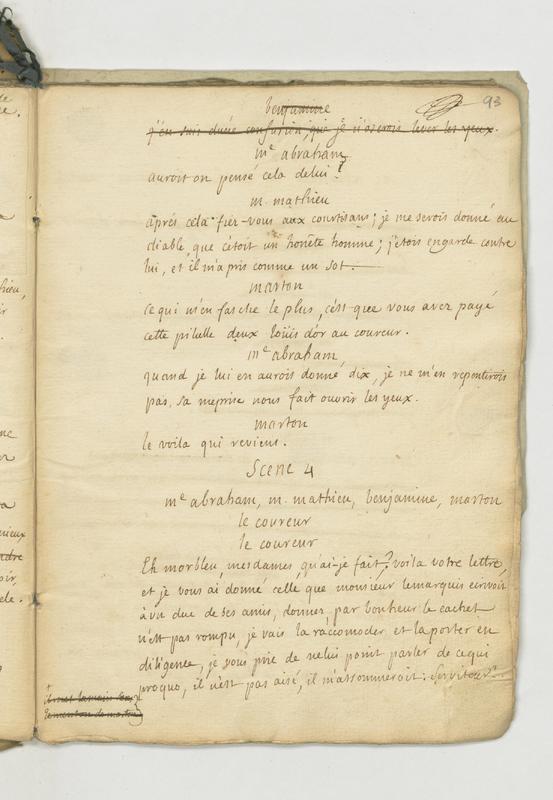 93
benjamine
j'en suis decée confusion, que je n'oserois lever les yeux.
me abraham
auroit on pensé cela delui?
m. mathieu
aprés cela fier-vous aux courtisans; je me serois donné au
diable que c'étoit un honête homme; j'etois engarde contre
lui, et il m'a pris comme un sot.
marton
ce qui m'en fasche le plus, c'est que vous avez payé
cette pilulle deux loüis d'or au coureur.
me abraham
quand je lui en aurois donné dix, je ne m'en repentirois
pas, sa meprise nous fait ouvrir les yeux.
marton
le voila qui revient.
Scene 4
me abraham, m. mathieu, benjamine, marton
le coureur
le coureur
Eh morbleu, mesdames, qu'ai-je fait? voila votre lettre,
et je vous ai donné celle que monsieur lemarquis ecrivoit
à un duc de ses amis, donnes, par bonheur le cachet
n'est pas rompu, je vais la raccomoder et la porter en
diligence, je vous prie de nelui point parler de cequi
proquo, il n'est pas aisé, il m'assommeroit: Serviteur.
il met la main sous
le menton de marton